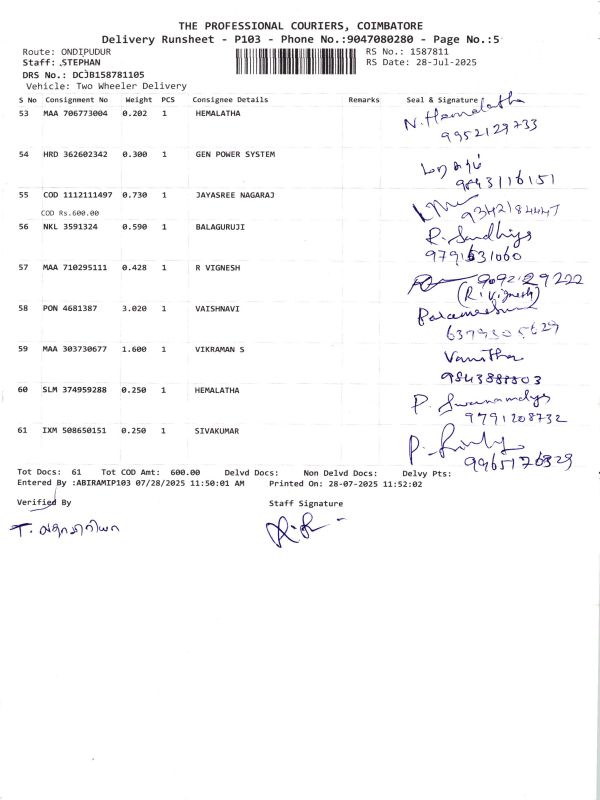 THE PROFESSIONAL COURIERS, COIMBATORE
Delivery Runsheet - P103 - Phone No.:9047080280 - Page No.:5
Route: ONDIPUDUR
RS No.: 1587811
Staff: .STEPHAN
RS Date: 28-Jul-2025
DRS No.: DCJB158781105
Vehicle: Two Wheeler Delivery
S No Consignment No Weight PCS Consignee Details Remarks Seal & Signature
53 MAA 706773004 0.202 1 HEMALATHA N. Hemalatha
9952129733
54 HRD 362602342 0.300 1 GEN POWER SYSTEM
9843116151
55 COD 1112111497 0.730 1 JAYASREE NAGARAJ
COD Rs.600.00
9342184447
56 NKL 3591324 0.590 1 BALAGURUJI R. Sandhiya
9791631060
57 MAA 710295111 0.428 1 R VIGNESH 9092129222
(R. Vignesh)
58 PON 4681387 3.020 1 VAISHNAVI
6379305629
59 MAA 303730677 1.600 1 VIKRAMAN S Vanitha
9843888803
60 SLM 374959288 0.250 1 HEMALATHA P.
9791208732
61 IXM 508650151 0.250 1 SIVAKUMAR P.
9965176929
Tot Docs: 61 Tot COD Amt: 600.00 Delvd Docs: Non Delvd Docs: Delvy Pts:
Entered By :ABIRAMIP103 07/28/2025 11:50:01 AM Printed On: 28-07-2025 11:52:02
Verified By Staff Signature
T.